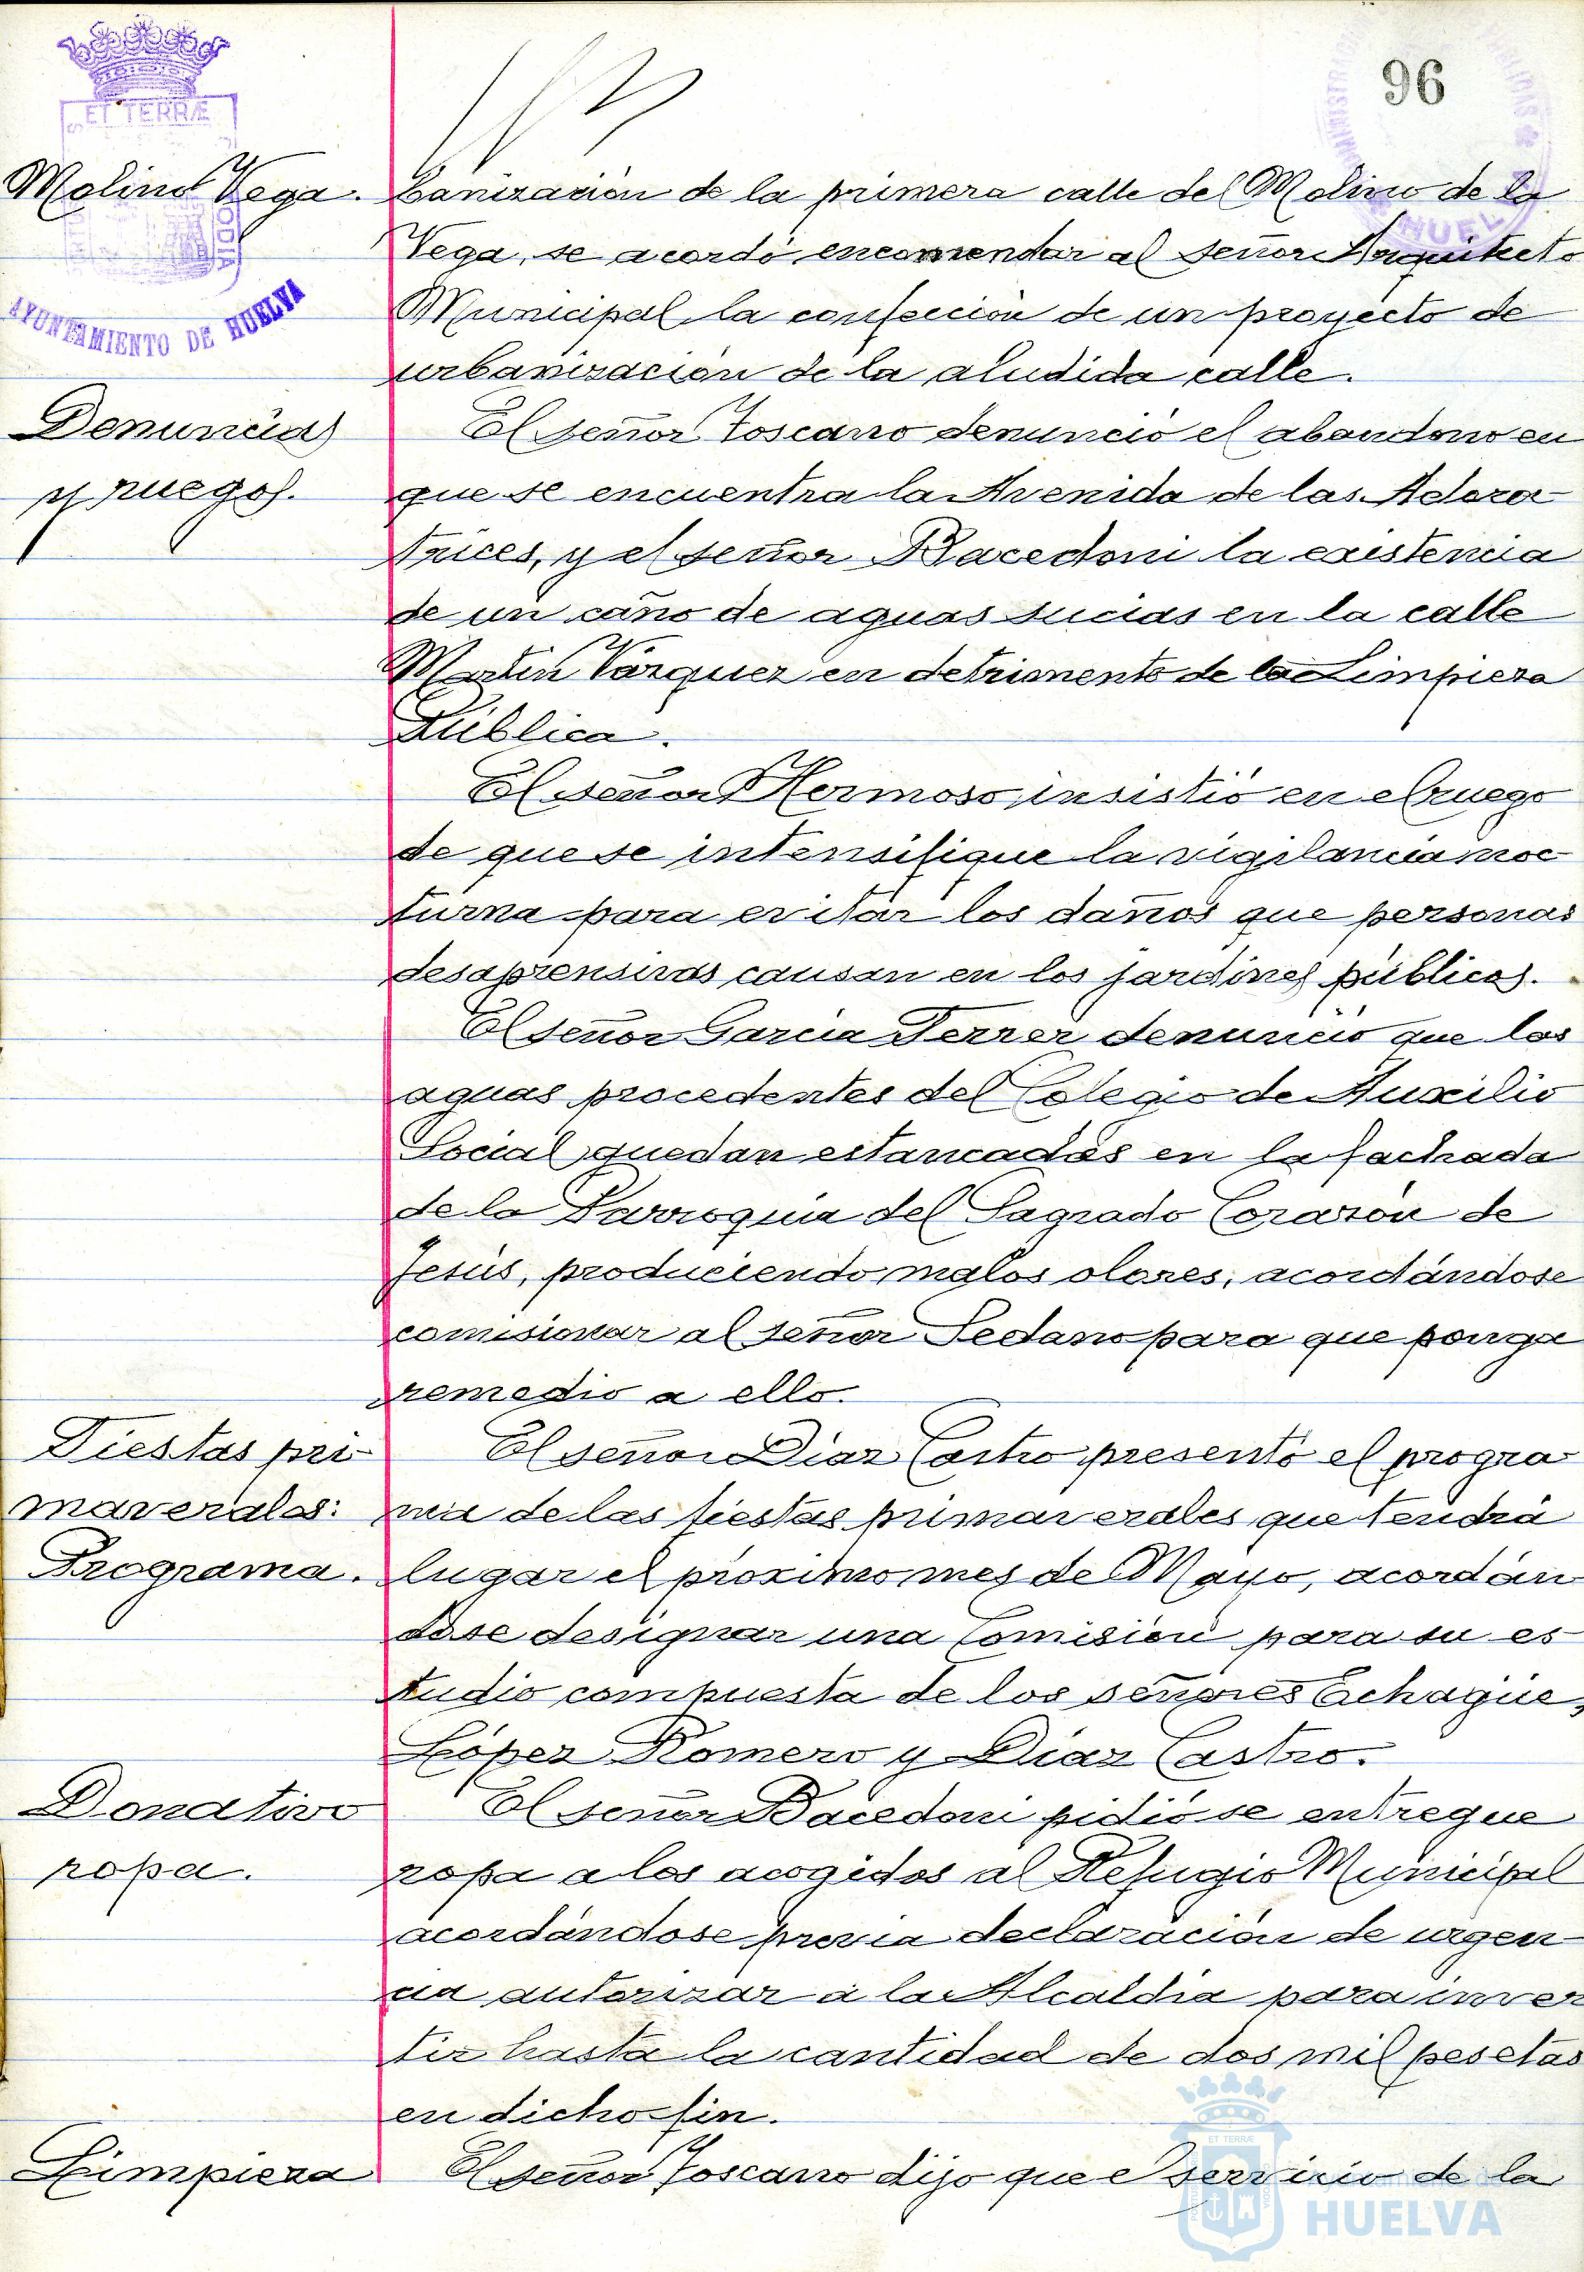 96
ET TERRÆ
AYUNTAMIENTO DE HUELVA
Molino Vega.
banización de la primera calle del Molino de la
Vega, se acordó encomendar al señor Arquitecto
Municipal la confección de un proyecto de
urbanización de la aludida calle.
Denuncias
y ruegos.
El señor Toscano denunció el abandono en
que se encuentra la Avenida de las Adora-
trices, y el señor Bacedoni la existencia
de un caño de aguas sucias en la calle
Martín Vázquez en detrimento de la Limpieza
Pública.
El señor Hermoso insistió en el ruego
de que se intensifique la vigilancia noc-
turna para evitar los daños que personas
desaprensivas causan en los jardines públicos.
El señor García Ferrer denunció que las
aguas procedentes del Colegio de Auxilio
Social quedan estancadas en la fachada
de la Parroquia del Sagrado Corazón de
Jesús, produciendo malos olores, acordándose
comisionar al señor Sedano para que ponga
remedio a ello.
Fiestas pri-
maverales:
Programa.
El señor Díaz Castro presentó el progra-
ma de las fiestas primaverales que tendrá
lugar el próximo mes de Mayo, acordán-
dose designar una Comisión para su es-
tudio compuesta de los señores Echagüe,
López Romero y Díaz Castro.
Donativo
ropa.
El señor Bacedoni pidió se entregue
ropa a los acogidos al Refugio Municipal
acordándose previa declaración de urgen-
cia autorizar a la Alcaldía para inver
tir hasta la cantidad de dos mil pesetas
en dicho fin.
Limpieza
El señor Toscano dijo que el servicio de la
ET TERRÆ
HUELVA